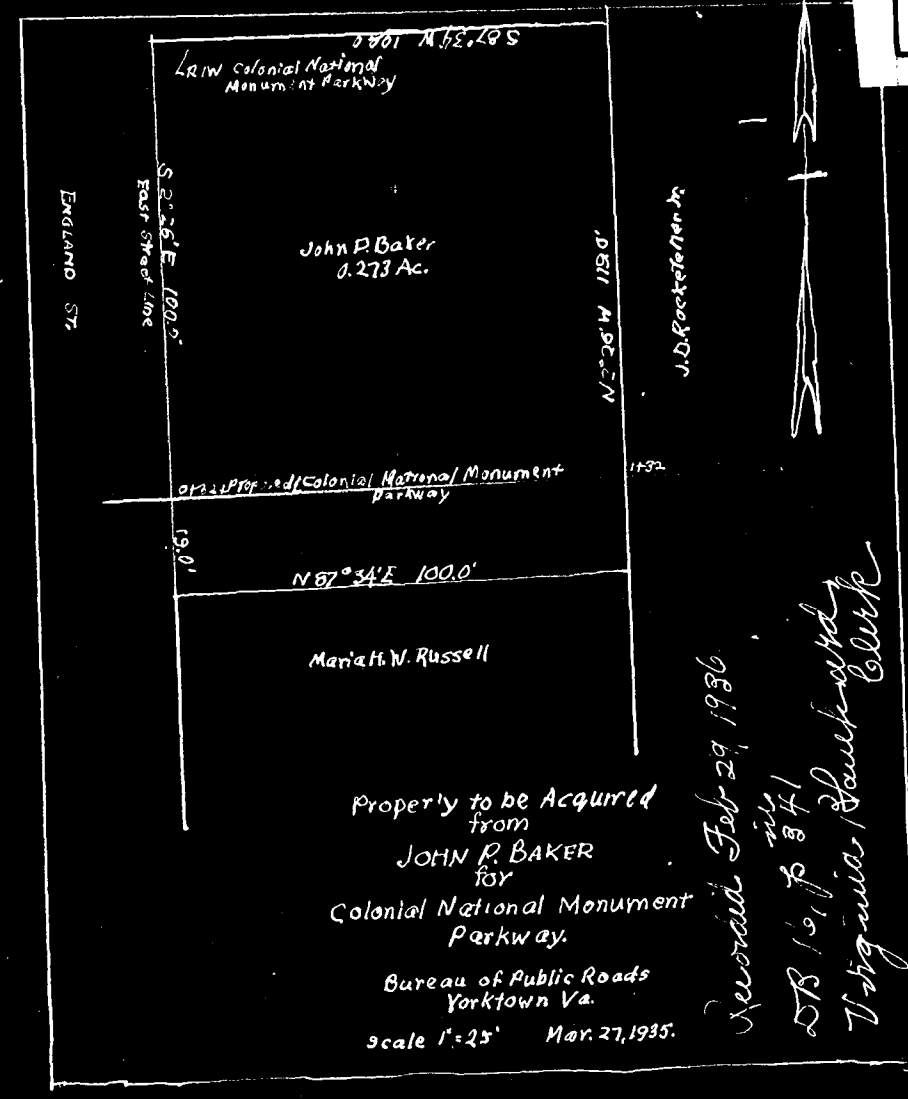 S 87° 34' W 100.0
R/W Colonial National
Monument Parkway
ENGLAND ST.
East Street Line
S 2° 26' E 100.0'
John P. Baker
0.273 Ac.
J.D. Rockefeller Jr.
Colonial National Monument
Parkway
1+32
19.0'
N 87° 34' E 100.0'
Maria H. W. Russell
Property to be Acquired
from
JOHN P. BAKER
for
Colonial National Monument
Parkway.
Bureau of Public Roads
Yorktown Va.
Scale 1"=25' Mar. 27, 1935.
Recorded Feb 29, 1936
in
DB 16, p 341
Virginia Clerk